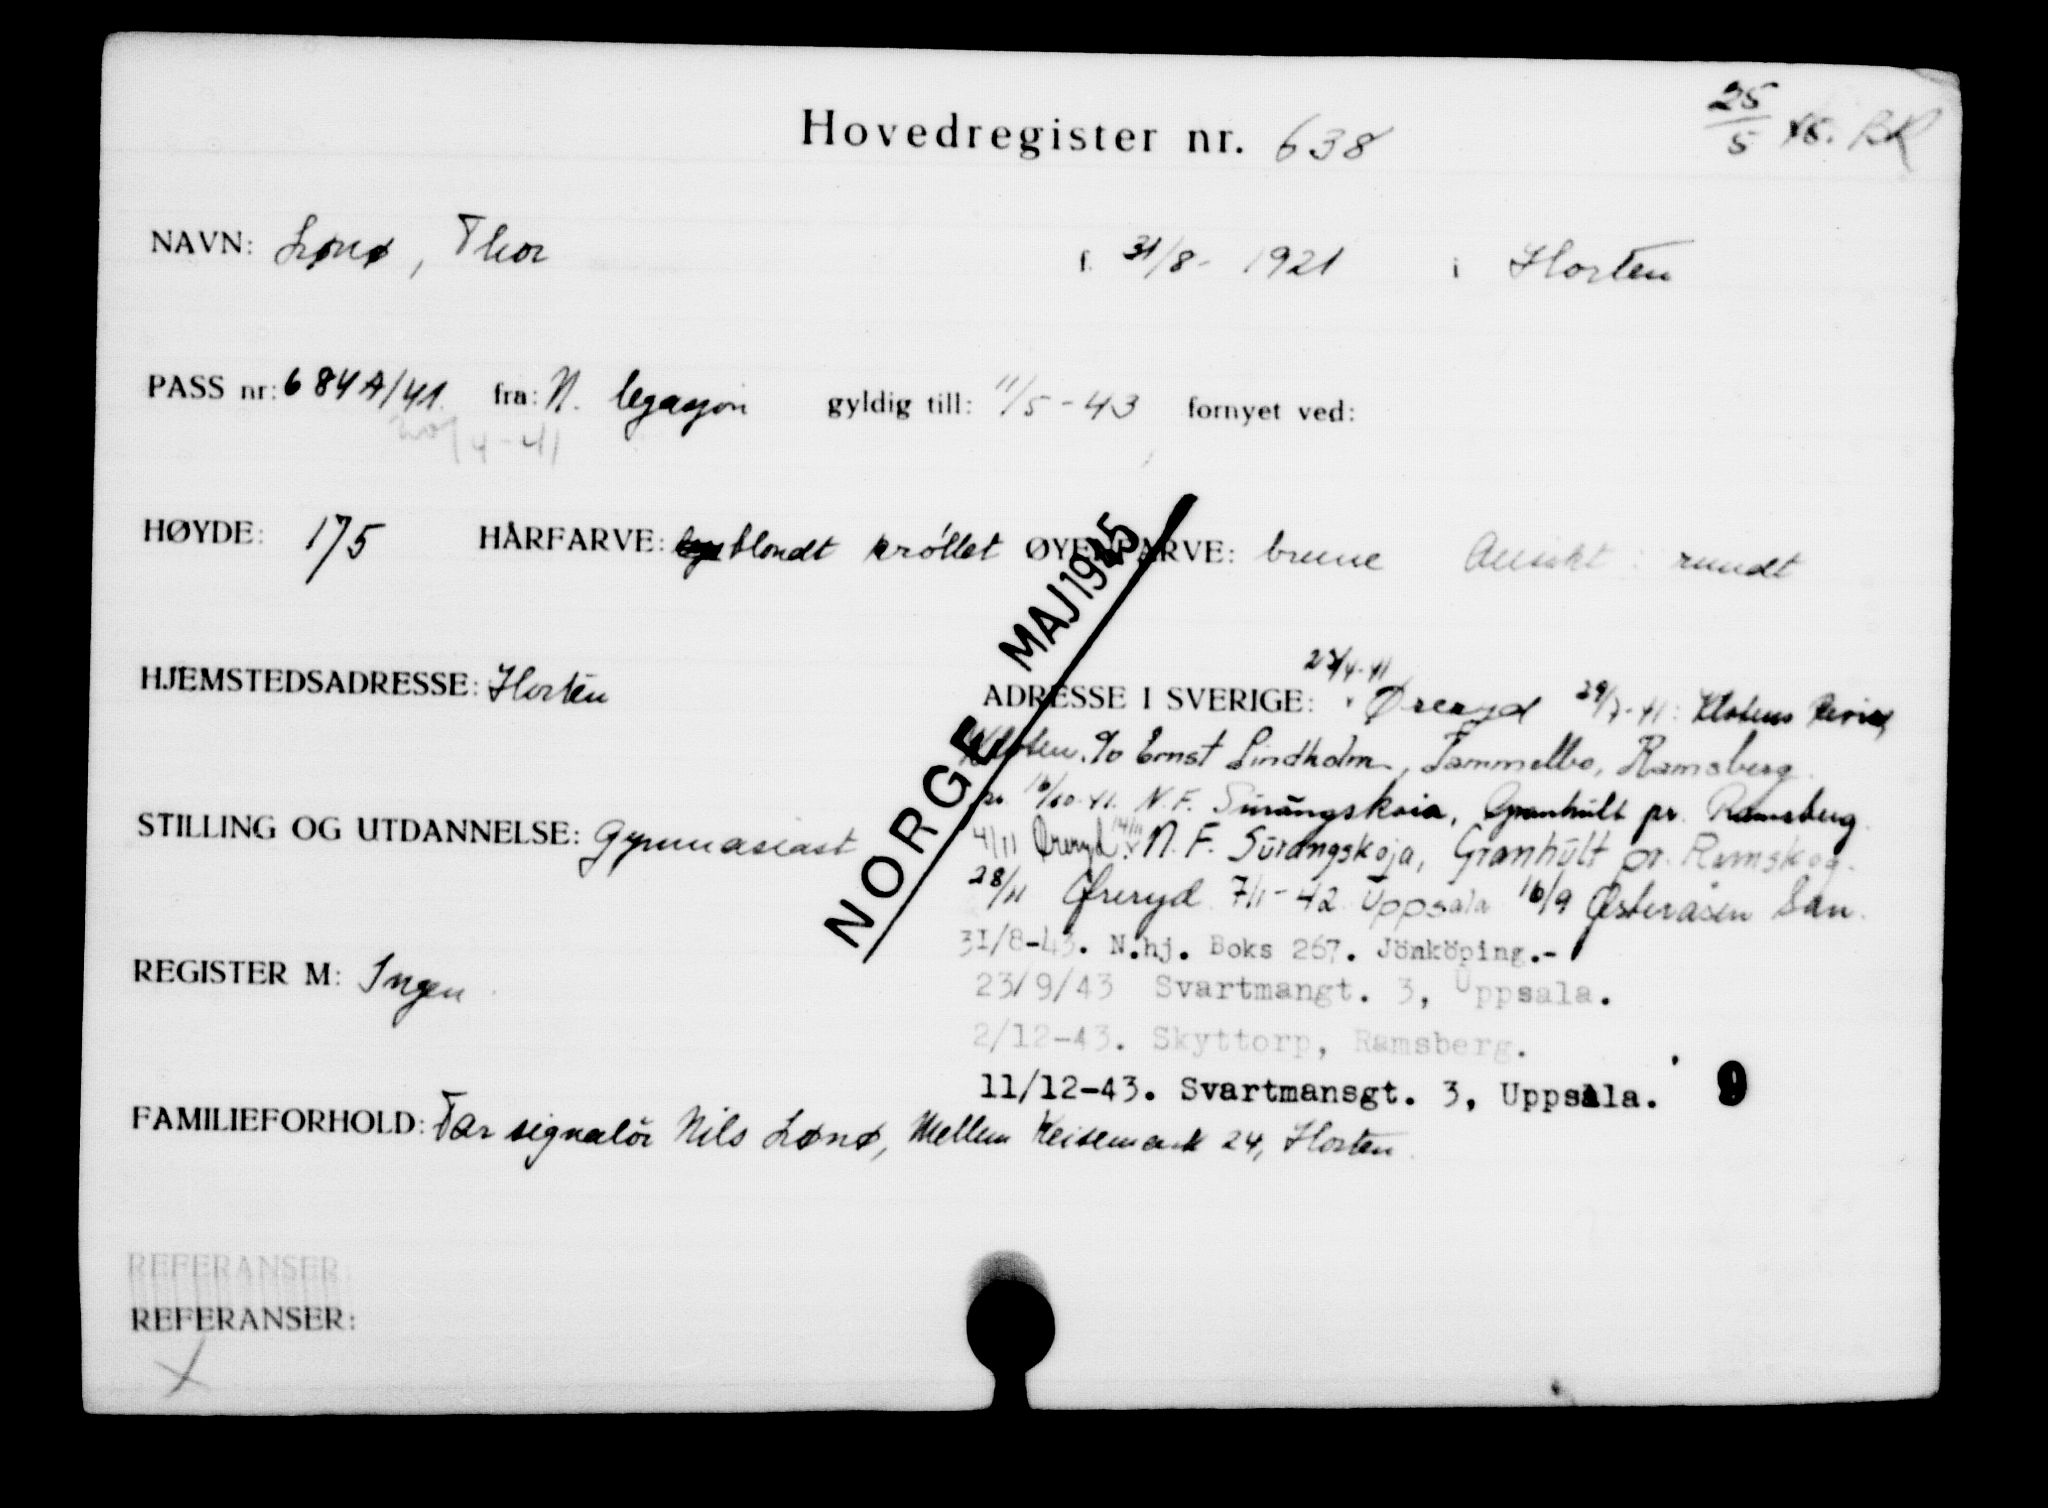 25/5 45. BR
Hovedregister nr. 638
NAVN: Lønø, Thor f. 31/8- 1921 i Horten
PASS nr: 684A/41. fra: N. legasjon gyldig till: 11/5-43 fornyet ved:
4-41
HØYDE: 175 HÅRFARVE: blondt krøllet ØYENFARVE: brune Ansikt: rundt
NORGE MAJ 1945
23/4-41
HJEMSTEDSADRESSE: Horten ADRESSE I SVERIGE: Øreryd 29/7-41: Klotens Revier,
Kloten. c/o Ernst Lindholm, Tammelbo, Ramsberg.
16/10-41. N.F. Surängskoia, Granhult pr. Ramsberg
STILLING OG UTDANNELSE: Gymnasiast 4/11 Øreryd. 14/11 N.F. Surangskoja, Granhult pr. Ramskog.
28/11 Øreryd 7/1-42 Uppsala 16/9 Østeråsen San.
31/8-43. N.hj. Boks 267. Jönköping.-
REGISTER M: Ingen 23/9/43 Svartmangt. 3, Uppsala.
2/12-43. Skyttorp, Ramsberg.
11/12-43. Svartmansgt. 3, Uppsala. 9
FAMILIEFORHOLD: Far signalör Nils Lønø, Mellem Keisemark 24, Horten.
REFERANSER:
REFERANSER:
X